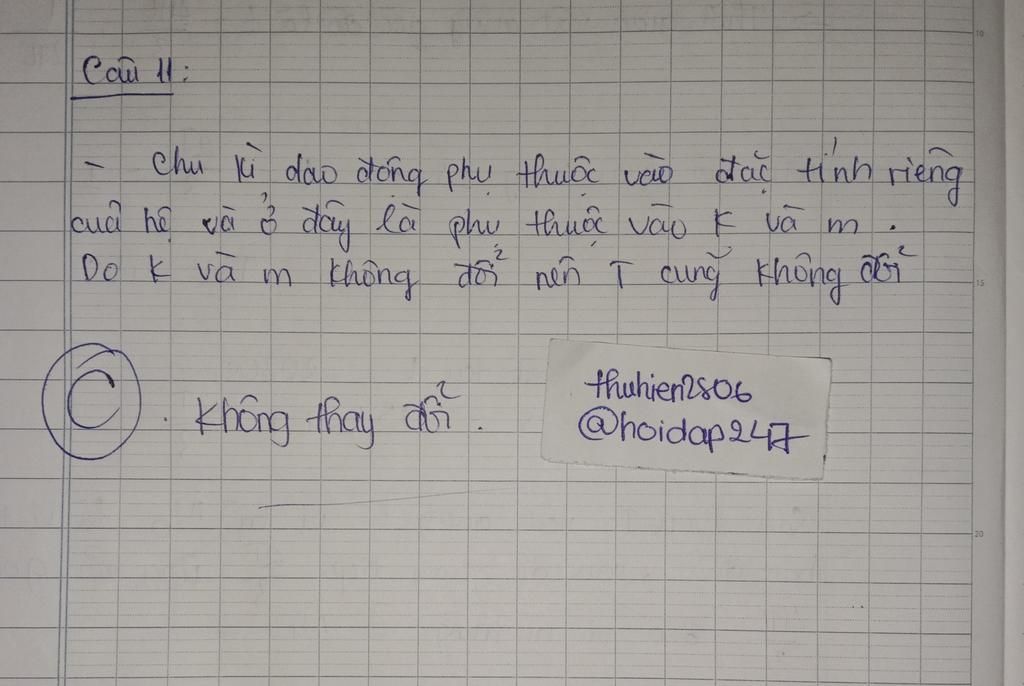 Câu 11:
- Chu kì dao động phụ thuộc vào đặc tính riêng
của hệ và ở đây là phụ thuộc vào K và m.
Do K và m không đổi nên T cũng không đổi
C. Không thay đổi.
thuhien2806
@hoidap247
10
15
20